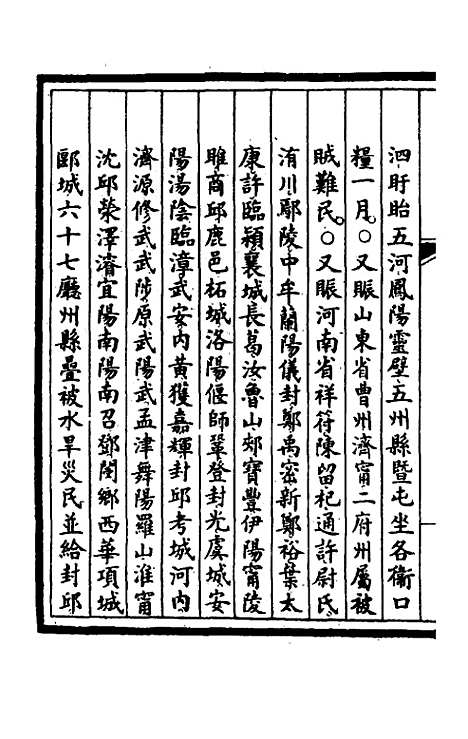 泗盱眙五河鳳陽靈壁五州縣暨屯坐各衛口
糧一月○又賑山東省曹州濟甯二府州屬被
賊難民○又賑河南省祥符陳留杞通許尉氏
洧川鄢陵中牟蘭陽儀封鄭禹密新鄭裕葉太
康許臨潁襄城長葛汝魯山郟寶豐伊陽甯陵
睢商邱鹿邑柘城洛陽偃師鞏登封光虞城安
陽湯陰臨漳武安內黃獲嘉輝封邱考城河內
濟源修武武陟原武陽武孟津舞陽羅山淮甯
沈邱滎澤濬宜陽南陽南召鄧閿鄉西華項城
郾城六十七廳州縣疊被水旱災民並給封邱